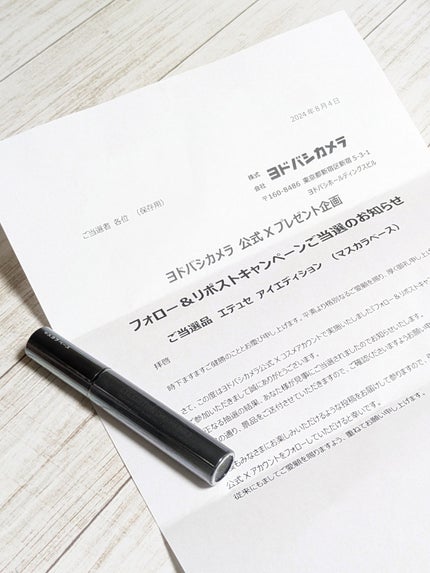 2024年8月4日
株式会社 ヨドバシカメラ
〒160-8486 東京都新宿区新宿 5-3-1
ヨドバシホールディングスビル
ご当選者 各位 (保存用)
ヨドバシカメラ 公式 X プレゼント企画
フォロー&リポストキャンペーンご当選のお知らせ
ご当選品 エテュセ アイエディション (マスカラベース)
拝啓
時下ますますご健勝のこととお慶び申し上げます。平素より格別なるご愛顧を賜り、厚く御礼申し上げ
さて、この度はヨドバシカメラ公式 X コスメアカウントで実施いたしました「フォロー&リポストキャ
参加いただきまして誠にありがとうございます。
なる抽選の結果、あなた様が見事にご当選されましたのでお知らせいたします。
の通り、景品をご送付させていただきますので、ご確認くださいますようお願い申
もみなさまにお楽しみいただけるような投稿をお届けして参りますので、
公式 X アカウントをフォローしていただけると幸いです。
従来にもましてご愛顧を賜りますよう、重ねてお願い申し上げます。